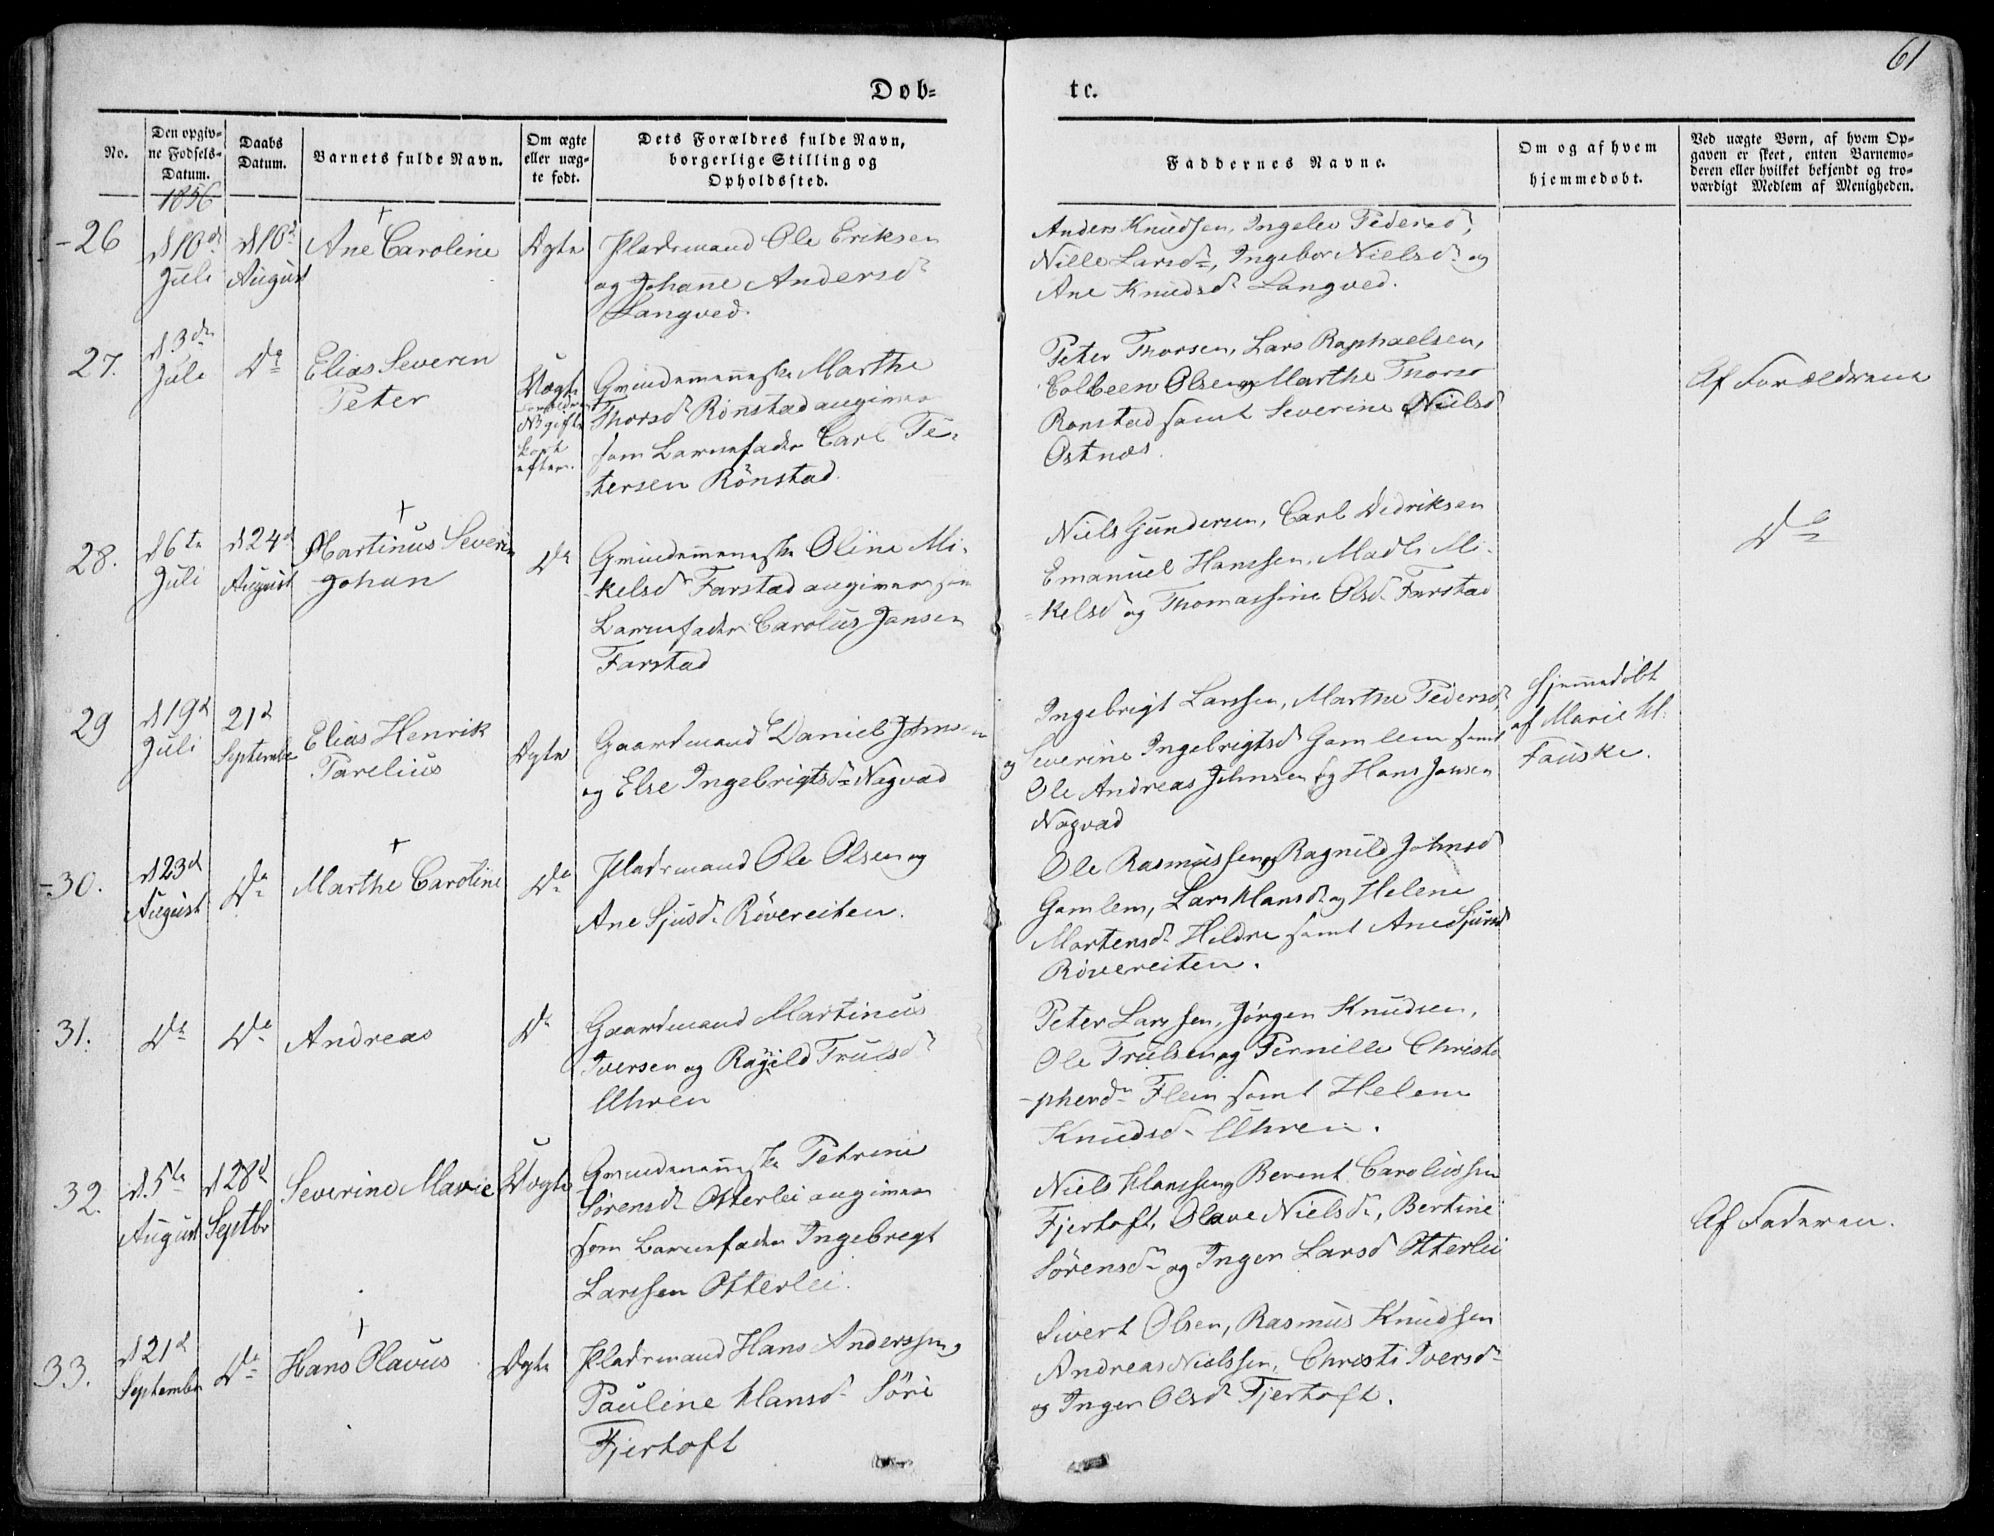 61
Døb=
te.
No.
Den opgiv-
ne Fødsels-
Datum.
Daabs
Datum.
Barnets fulde Navn.
Om ægte
eller uæg-
te født.
Dets Forældres fulde Navn,
borgerlige Stilling og
Opholdssted.
Faddernes Navne.
Om og af hvem
hjemmedøbt.
Ved uægte Børn, af hvem Op-
gaven er skeet, enten Barnemo-
deren eller hvilket bekjendt og tro-
værdigt Medlem af Menigheden.
1856
26
d 10de
Juli
d 10d
August
Ane Caroline
Ægte
Pladsmand Ole Eriksen
og Johanne Andersd
Langved.
Anders Knudsen, Ingelev Pedersd,
Nille Larsd, Ingebor Nielsd og
Ane Knudsd Langved.
27.
d. 3die
Juli
Do
Elias Severin
Peter
Uægte
Forældrene
gift
kort
efter.
Qvindemenneske Marthe
Thorsd Rönstad angiver
som Barnefader Carl Pe-
tersen Rönstad
Peter Thorsen, Lars Raphaelsen,
Colbeen Olsen og Marthe Thorsd
Ronstad samt Severine Nielsd
Ostnæs.
Af Forældrene
28.
d 6te
Juli
d 24d
August
Martinus Severin
Johan
Do
Qvindemenneske Oline Mi-
kelsd Farstad angiver som
Barnefader Carolus Jansen
Farstad
Niels Gundersen, Carl Dedriksen
Emanuel Hanssen, Madli Mi-
kelsd og Thomassine Olsd Farstad
Do
29
d 19d
Juli
21d
September
Elias Henrik
Parelius
Ægte
Gaardmand Daniel Johnsen
og Else Ingebrigtsd Nogvad
Ingebrigt Larssen, Marthe Pedersd,
og Severine Ingebrigtsd Gamlem samt
Ole Andreas Johnsen og Hans Jansen
Nogvad
Hjemmedöbt
af Marie M.
Fauske.
30.
d 23d
August
Do
Marthe Caroline
Do
Pladsmand Ole Olsen og
Ane Sjusd Rövereiten.
Ole Rasmussen og Ragnild Johnsd
Gamlem, Lars Hansd og Helene
Martensd Hildre samt Ane Sjursd
Rövereiten.
31.
Do
Do
Andreas
Do
Gaardmand Martinus
Iversen og Ragild Trulsd
Uhren
Peter Larssen, Jørgen Knudsen,
Ole Trulsen og Pernille Christo
-pherd Flein samt Helene
Knudsd Uhren.
32.
d. 5te
August
d 28d
Septbr
Severine Marie
Uægte
Qvindemenneske Petrine
Sörensd Otterlei angiver
som Barnefader Ingebregt
Larssen Otterlei.
Niels Hanssen og Berent Carolussen
Fjertoft, Olave Nielsd, Bertine
Sörensd og Inger Larsd Otterlei
Af Faderen.
33.
d 21d
September
Do
Hans Olavus
Ægte
Pladsmand Hans Anderssen og
Pauline Hansd Söre
Fjertoft
Sivert Olsen, Rasmus Knudsen
Andreas Nielssen, Christi Iversd
og Inger Olsd Fjertoft.